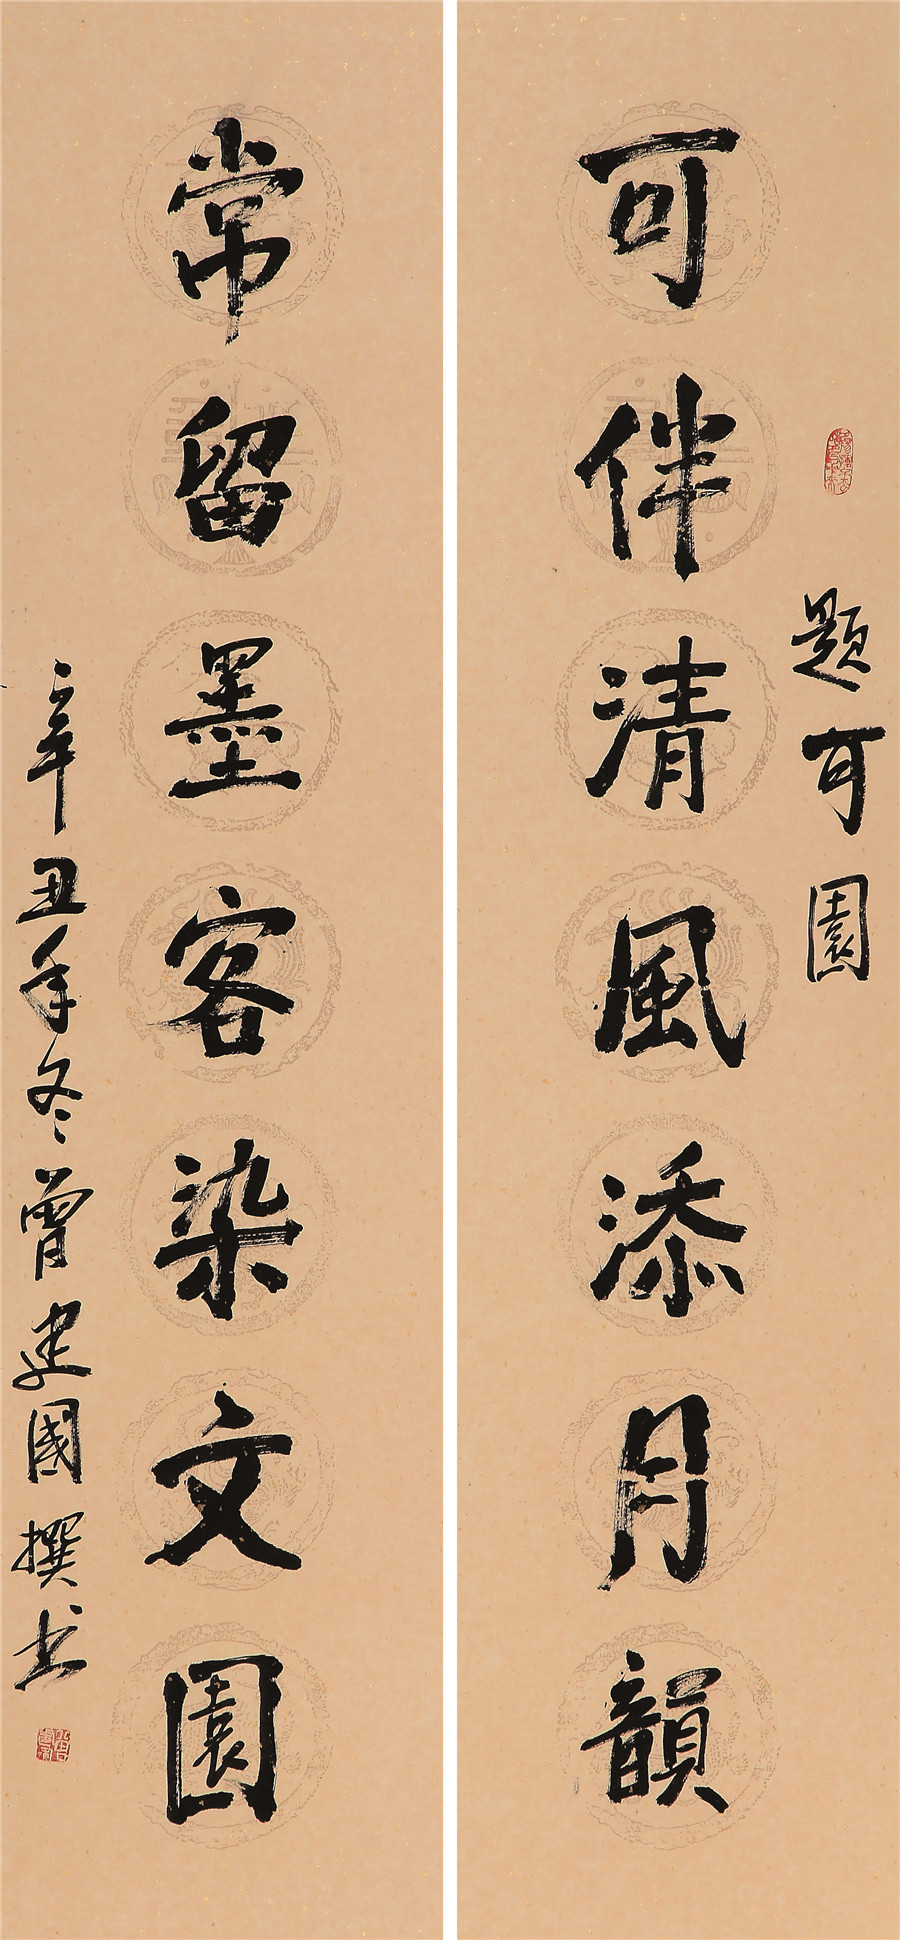 題可園
可伴清風添月韻
常留墨客染文園
辛丑年冬曾建國撰书